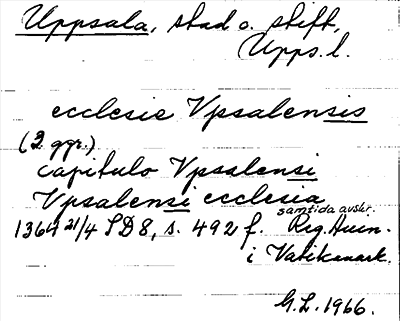 Uppsala, stad o. stift,
Upps. l.
ecclesie Vpsalensis
(2 ggr.)
capitulo Vpsalensi
Vpsalensi ecclesia
samtida avskr.
1364 21/4 SD 8, s. 492 f. Reg. Aven.
i Vatikanark.
G.L. 1966.